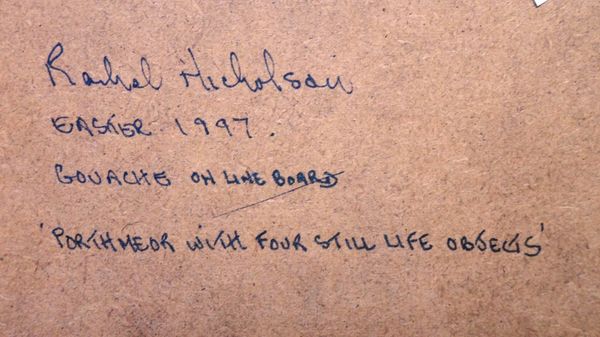 Rachel Nicholson
EASTER 1997.
GOUACHE ON LINE BOARD
'PORTHMEOR WITH FOUR STILL LIFE OBJECTS'